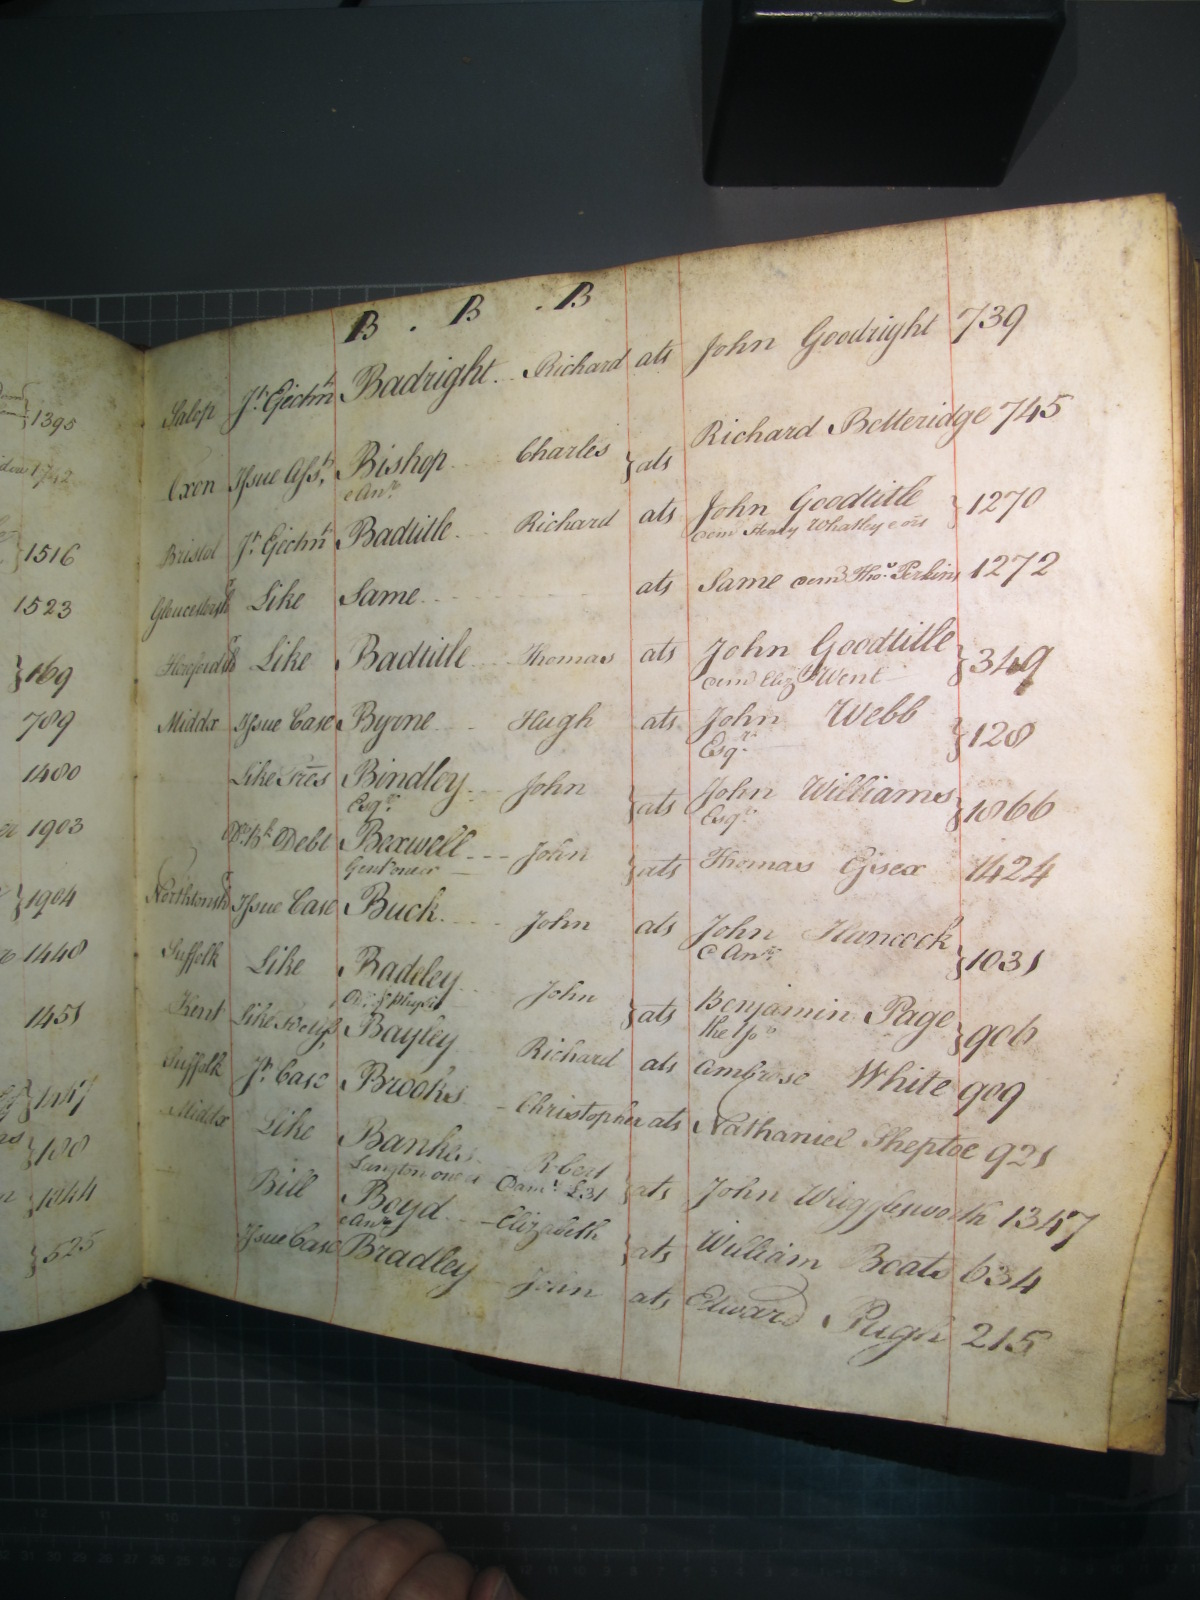 1395
1516
1523
} 169
789
1480
1903
} 1904
1440
1451
525
B . B . B
Salop Jt. Ejectmt Badright Richard ats John Goodright 739
Oxon Issue Asst. Bishop Charles } ats Richard Betteridge 745
e anr.
Bristol Jt. Ejectmt Badtitle Richard ats John Goodtitle } 1270
Gloucestersh Like Same ats Same dem Thos. Perkins 1272
Like Badtitle Thomas ats John Goodtitle } 349
dem Eliz. Went
Middx Issue Case Byrne Hugh ats John Webb } 128
Esqr.
Like Tres Bindley John } ats John Williams } 1866
Esqr. Esqr.
Debt Boxwell John } ats Thomas Gisex 1424
Gent one &c
Northtonsh Issue Case Buck John ats John Hancock } 1031
e Anr.
Suffolk Like Badeley John } ats Benjamin Page } 906
Dr. of Physic the Yor
Kent Like Bayley Richard ats Ambrose White 909
Suffolk Jt. Case Brooks Christopher ats Nathaniel Sheptoe 921
Middx Like Bankes Robert } ats John Wrigglesworth 1347
Langton one &c Dams. £31
Bill Boyd Elizabeth } ats William Boats 634
e anr.
Issue Case Bradley John ats Edward Pugh 215